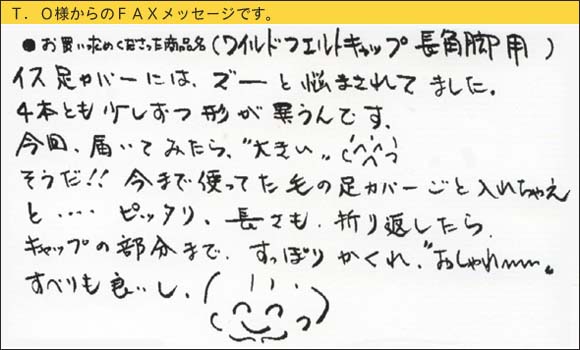 Ｔ．Ｏ様からのＦＡＸメッセージです。
●お買い求めくださった商品名(ワイルドフェルトキャップ 長角脚用 )
イス足カバーには、ズーと悩まされてました。
4本とも少しずつ形が異うんです、
今回、届いてみたら、"大きい〟
そうだ!! 今まで使ってた毛の足カバーごと入れちゃえ
と・・・・ ピッタリ、長さも、折り返したら、
キャップの部分まで、すっぽりかくれ、"おしゃれ〰〟。
すべりも良いし、